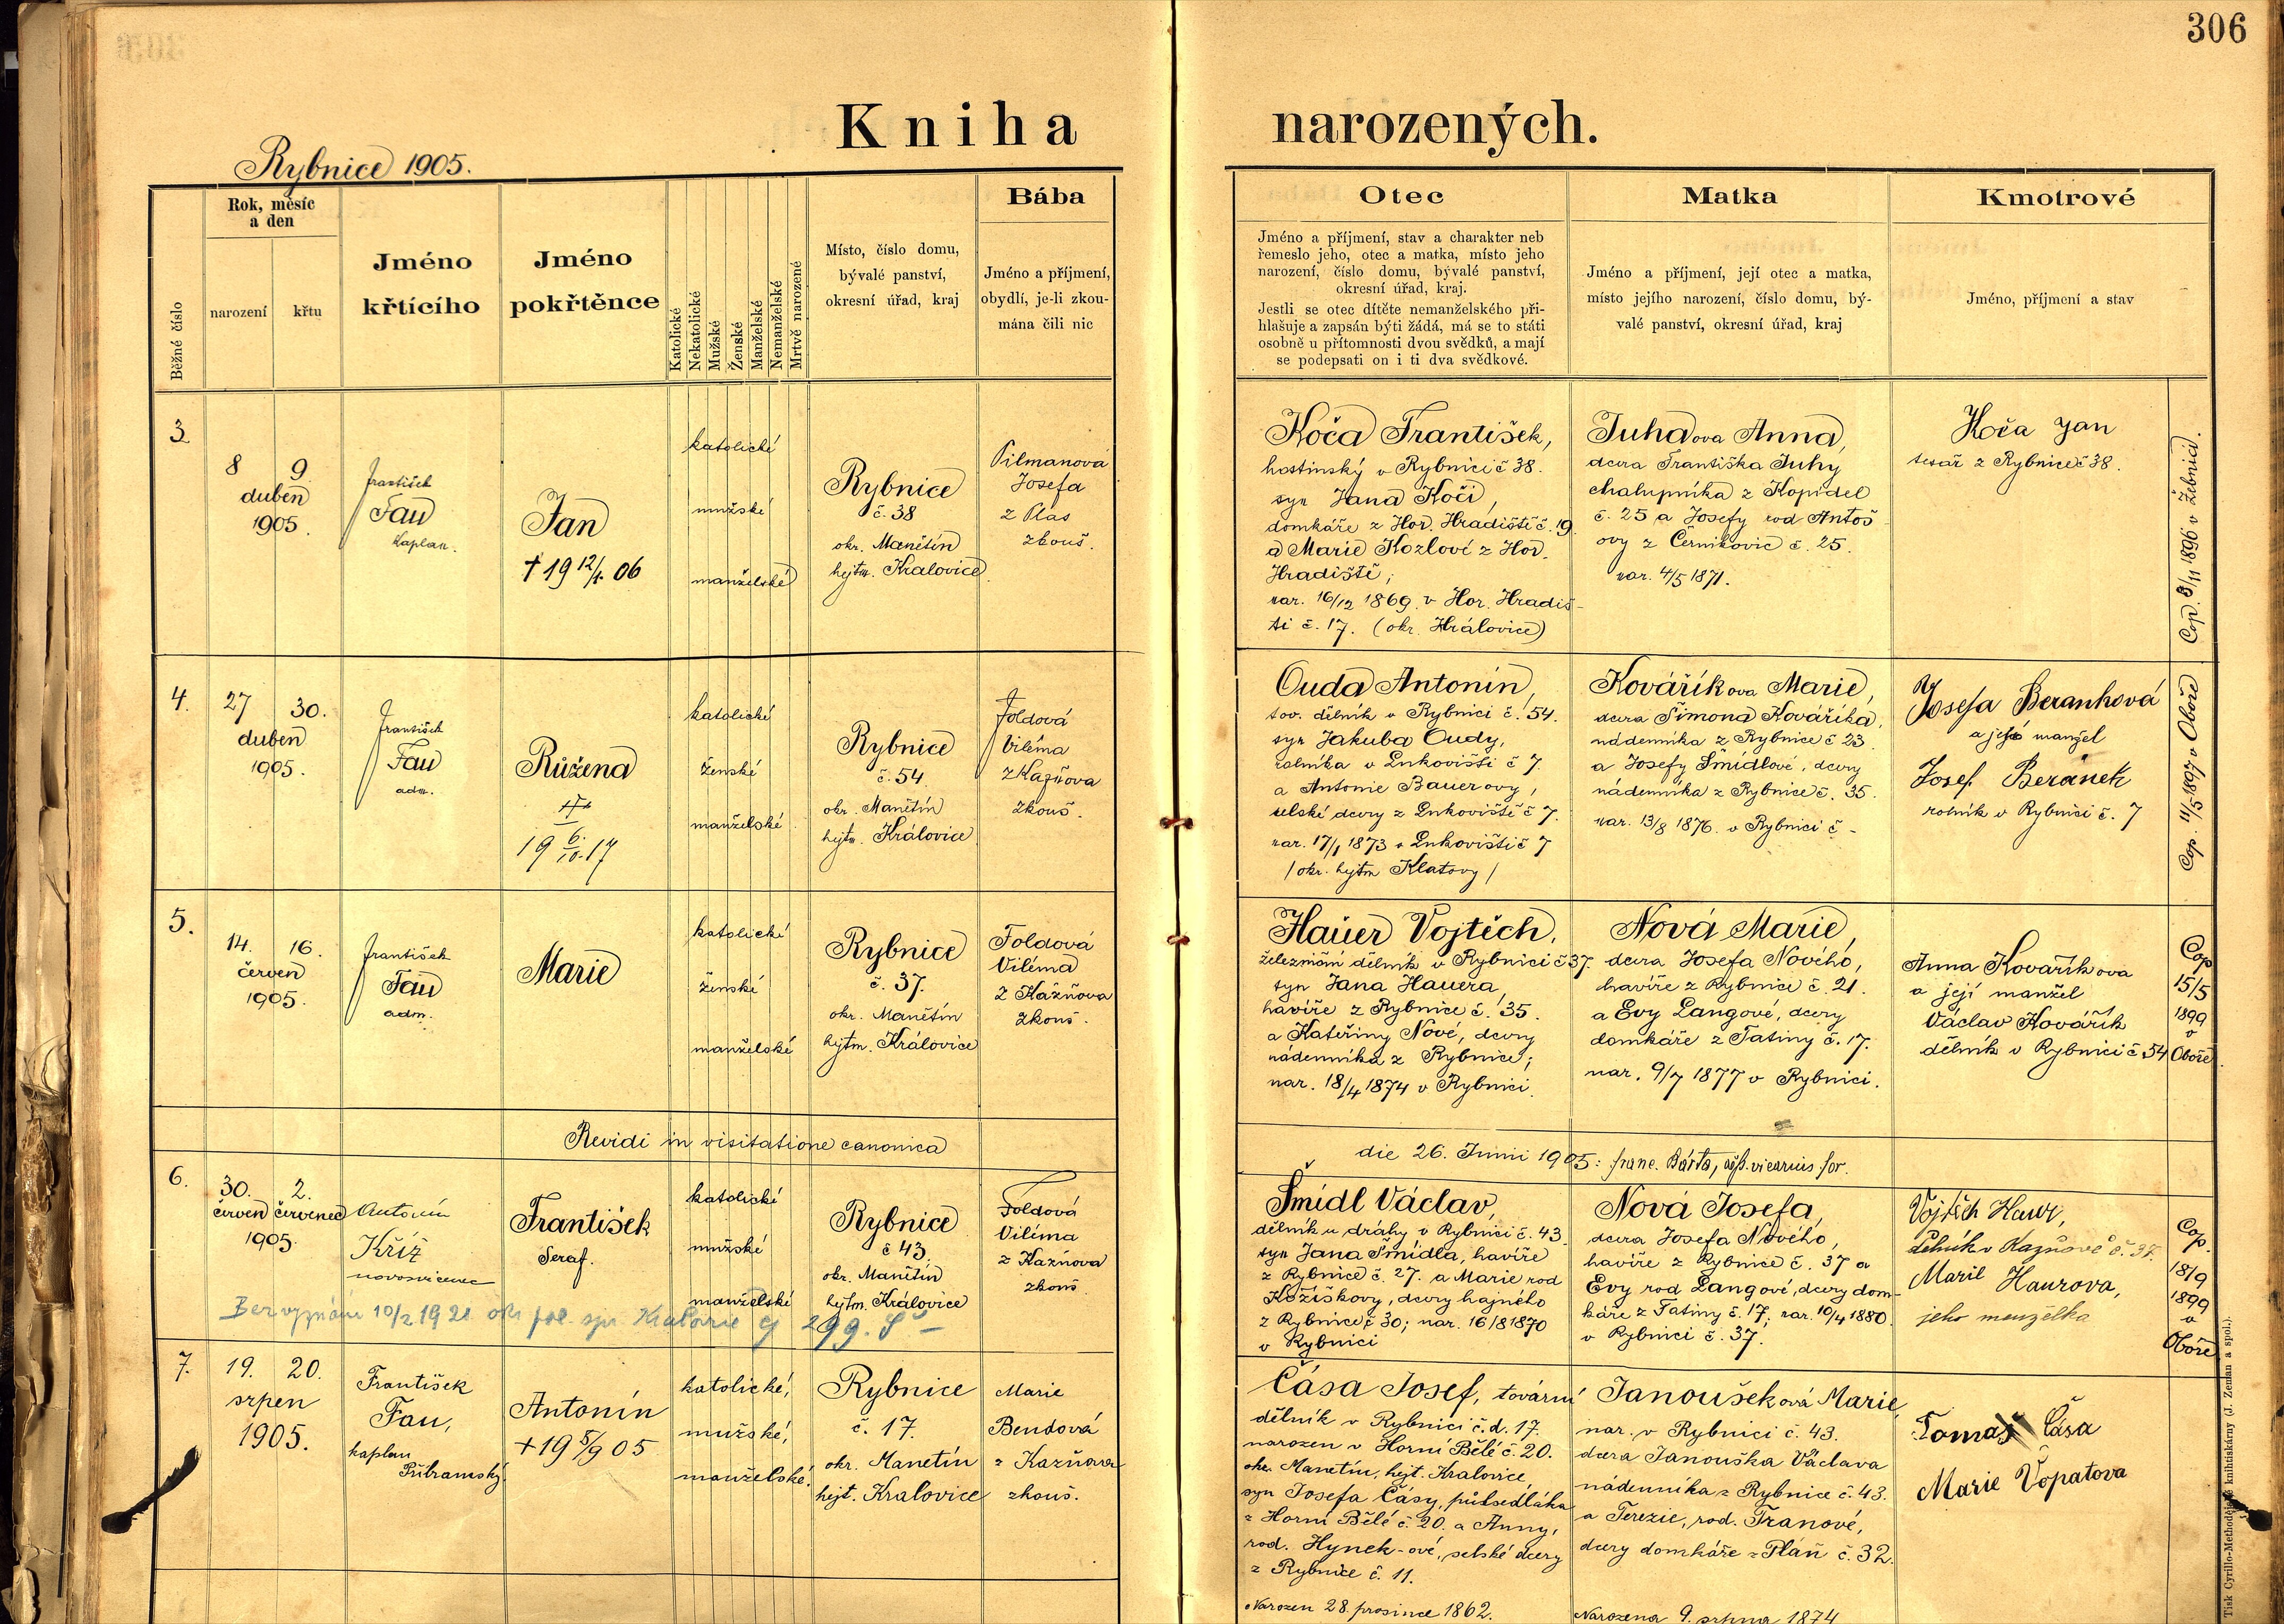 306
Kniha narozených.
Rybnice 1905.
Běžné číslo
Rok, měsíc
a den
narození
křtu
Jméno
křtícího
Jméno
pokřtěnce
Katolické
Nekatolické
Mužské
Ženské
Manželské
Nemanželské
Mrtvě narozené
Místo, číslo domu,
bývalé panství,
okresní úřad, kraj
Bába
Jméno a příjmení,
obydlí, je-li zkou-
mána čili nic
Otec
Jméno a příjmení, stav a charakter neb
řemeslo jeho, otec a matka, místo jeho
narození, číslo domu, bývalé panství,
okresní úřad, kraj.
Jestli se otec dítěte nemanželského při-
hlašuje a zapsán býti žádá, má se to státi
osobně u přítomnosti dvou svědků, a mají
se podepsati on i ti dva svědkové.
Matka
Jméno a příjmení, její otec a matka,
místo jejího narození, číslo domu, bý-
valé panství, okresní úřad, kraj
Kmotrové
Jméno, příjmení a stav
3.
8 9.
duben
1905.
František
Fau
Kaplan.
Jan
† 19 12/1. 06
katolické
mužské
manželské
Rybnice
č. 38
okr. Manětín
hejtm. Kralovice.
Pilmanová
Josefa
z Plas
zkouš.
Koča František,
hostinský v Rybnici č 38.
syn Jana Koči,
domkáře z Hor. Hradiště č. 19.
a Marie Kozloví z Hor.
Hradiště;
nar. 16/12 1869. v Hor. Hradiš-
ti č. 17. (okr. Královice)
Juhaova Anna,
dcera Františka Juhy
chalupníka z Kopidel
č. 25 a Josefy rod Antoš
ovy z Černíkovic č. 25.
nar. 4/5 1871.
Koča Jan
tesař z Rybnice č 38.
Cop. 3/11 1896 v Žebnici.
4.
27 30.
duben
1905.
František
Fau
adm.
Růžena
19 6./10. 17
katolické
ženské
manželské
Rybnice
č. 54.
okr. Manětín
hejtm. Královice
Foldová
Viléma
z Kazňova
zkouš.
Ouda Antonín,
tov. dělník v Rybnici č. 54.
syn Jakuba Oudy,
rolníka v Lukovišti č 7.
a Antonie Bauerovy,
selské dcery z Lukoviště č 7.
nar. 17/1 1873 v Lukovišti č 7
/okr. hejtm Klatovy/
Kovaříkova Marie,
dcera Šimona Kovaříka,
nádenníka z Rybnice č 23.
a Josefy Šmídlové, dcery
nádenníka z Rybnice č. 35.
nar. 13/8 1876. v Rybnici č -
Josefa Beranková
a její manžel
Josef Beránek
rolník v Rybnici č. 7
Cop. 11/5 1897 v Oboře
5.
14. 16.
červen
1905.
František
Fau
adm.
Marie
katolické
ženské
manželské
Rybnice
č. 37.
okr. Manětín
hejtm. Královice
Foldová
Viléma
z Kázňova
zkouš.
Hauer Vojtěch,
železniční dělník v Rybnici č 37.
syn Jana Hauera,
havíře z Rybnice č. 35.
a Kateřiny Nové, dcery
nádenníka z Rybnice;
nar. 18/4 1874 v Rybnici.
Nová Marie,
dcera Josefa Nového,
havíře z Rybnice č. 21.
a Evy Langové, dcery
domkáře z Tatiny č. 17.
nar. 9/7 1877 v Rybnici.
Anna Kovaříkova
a její manžel
Václav Kovářík
dělník v Rybnici č 54
Cop
15/5
1899
v
Oboře
Revidi in visitatione canonica
die 26. Junii 1905: franc. Bárta, vicarius for.
6.
30. 2.
červen červenec
1905.
Antonín
Kříž
novosvěcenec
František
Seraf.
katolické
mužské
manželské
Rybnice
č 43.
okr. Manětín
hejtm. Královice
Foldová
Viléma
z Kazňova
zkouš.
Bez vyznání 10/2 1921 okr. pol. spr. Kralovic čj 299.
Šmídl Václav,
dělník u dráhy v Rybnici č. 43.
syn Jana Šmídla, havíře
z Rybnice č. 27. a Marie rod
Kožíškovy, dcery hajného
z Rybnice č 30; nar. 16/8 1870
v Rybnici
Nová Josefa,
dcera Josefa Nového,
havíře z Rybnice č. 37 a
Evy rod Langové, dcery dom-
káře z Tatiny č. 17; nar. 10/4 1880.
v Rybnici č. 37.
Vojtěch Hauer,
Dělník v Kazňově č. 37.
Marie Haurova,
jeho manželka
Cop.
18/9
1899
v
Oboře
7.
19. 20.
srpen
1905.
František
Fau,
kaplan
Příbramský.
Antonín
+ 19 5/9 05
katolické,
mužské,
manželské.
Rybnice
č. 17.
okr. Manetín
hejt. Kralovice
Marie
Bendová
z Kazňova
zkouš.
Čása Josef, tovární
dělník v Rybnici č. d. 17.
narozen v Horní Bělé č. 20.
okr. Manetín, hejt. Kralovice,
syn Josefa Čásy, půlsedláka
z Horní Bělé č. 20. a Anny,
rod. Hynek-ové, selské dcery
z Rybnice č. 11.
Narozen 28. prosince 1862.
Janoušeková Marie,
nar. v Rybnici č. 43.
dcera Janouška Václava
nádenníka z Rybnice č. 43.
a Terezie, rod. Franové,
dcery domkáře z Pláň č. 32.
Narozena 9. srpna 1874
Tomaš Čása
Marie Vopatova
Tisk Cyrillo-Methodějské knihtiskárny (J. Zeman a spol.).